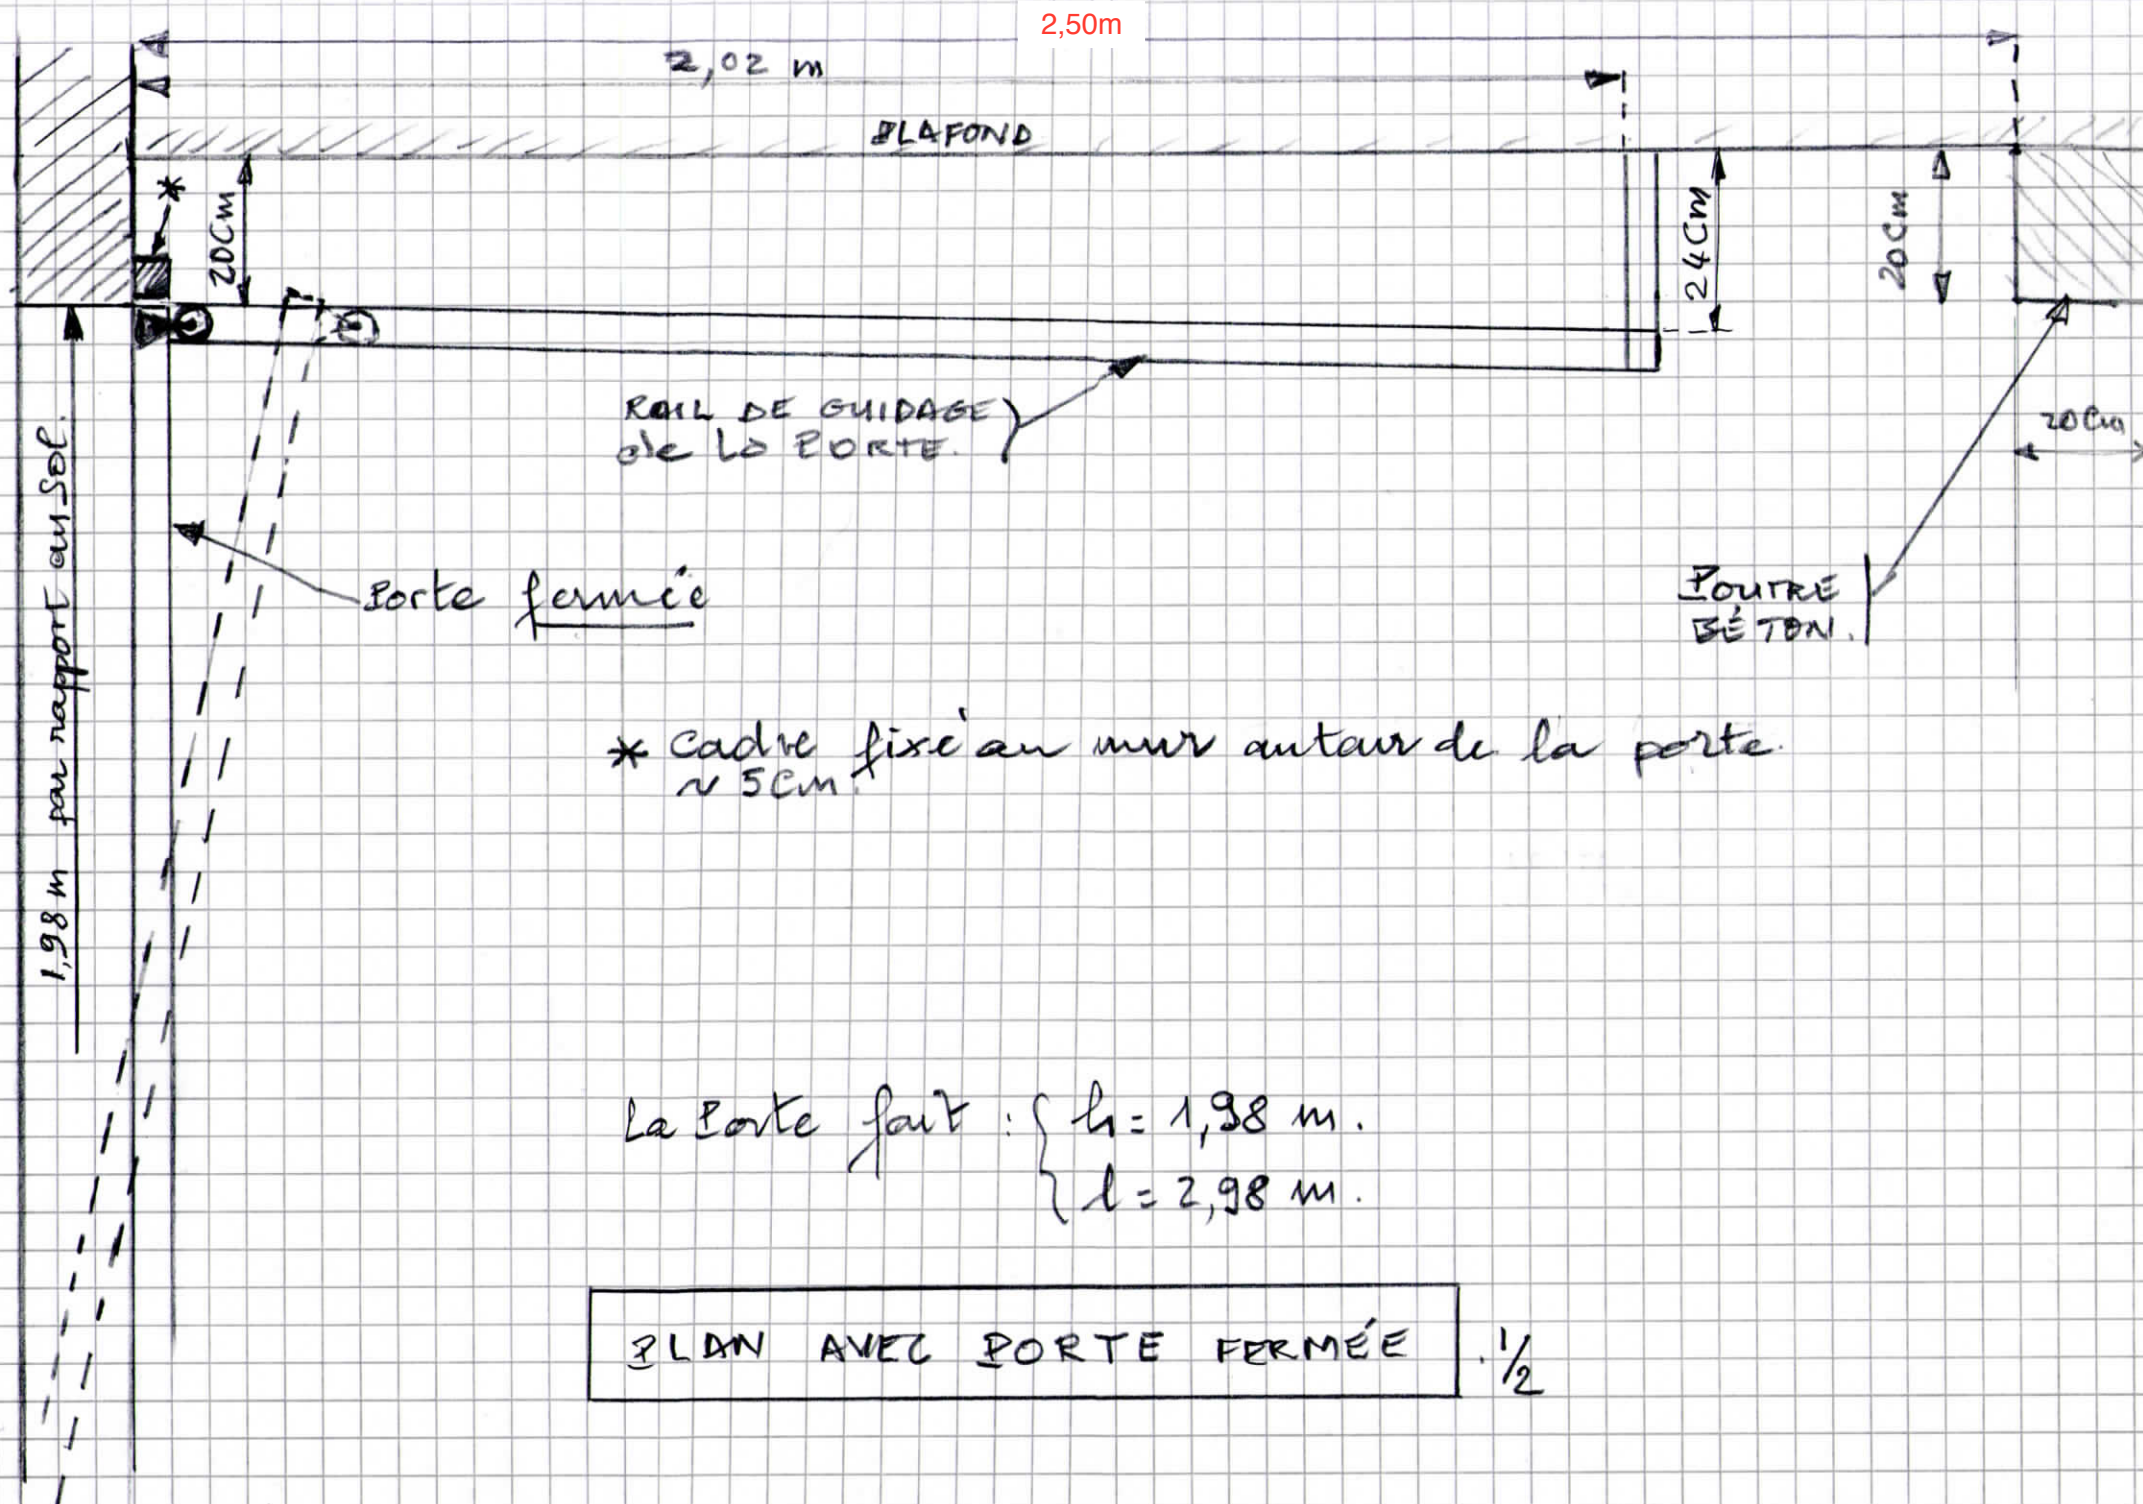 2,50m
2,02 m
PLAFOND
*
20Cm
24Cm
20Cm
20Cm
RAIL DE GUIDAGE
de la PORTE.
1,98 m par rapport au Sol.
Porte fermée
POUTRE
BÉTON.
* Cadre fixé au mur autour de la porte.
~ 5Cm.
La Porte fait : { h = 1,98 m.
l = 2,98 m.
PLAN AVEC PORTE FERMÉE . 1/2